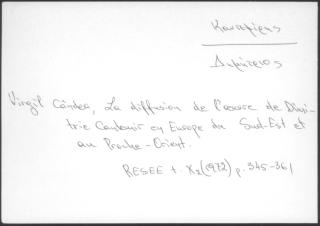 Καντεμίρης
Δημήτριος
Virgil Cândea, La diffusion de l'œuvre de Dimi-
trie Cantemir en Europe du Sud-Est et
au Proche-Orient.
RESEE t. X2(1972) p. 345-361